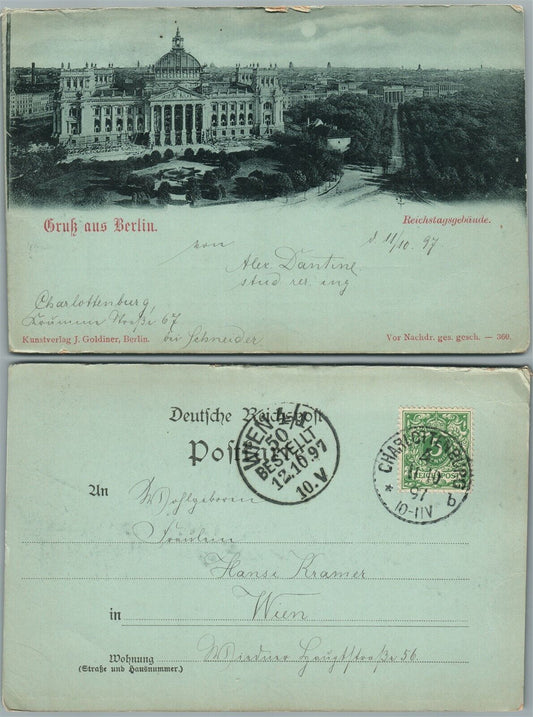 Gruß aus Berlin.
Reichstagsgebäude.
von
d 11/10. 97
Alex Dantine
stud rer. ing
Charlottenburg,
Krumme Straße 67
bei Schneider
Kunstverlag J. Goldiner, Berlin.
Vor Nachdr. ges. gesch. — 360.
Deutsche Reichspost
Postkarte
WIEN 4/1
50
BESTELLT
12.10.97
10.V
CHARLOTTENBURG
11.10
97
10-11V
* b
REICHSPOST
5
An
Wohlgeboren
Fräulein
Hansi Kramer
in
Wien
Wohnung
(Straße und Hausnummer.)
Wiedner Hauptstraße 56